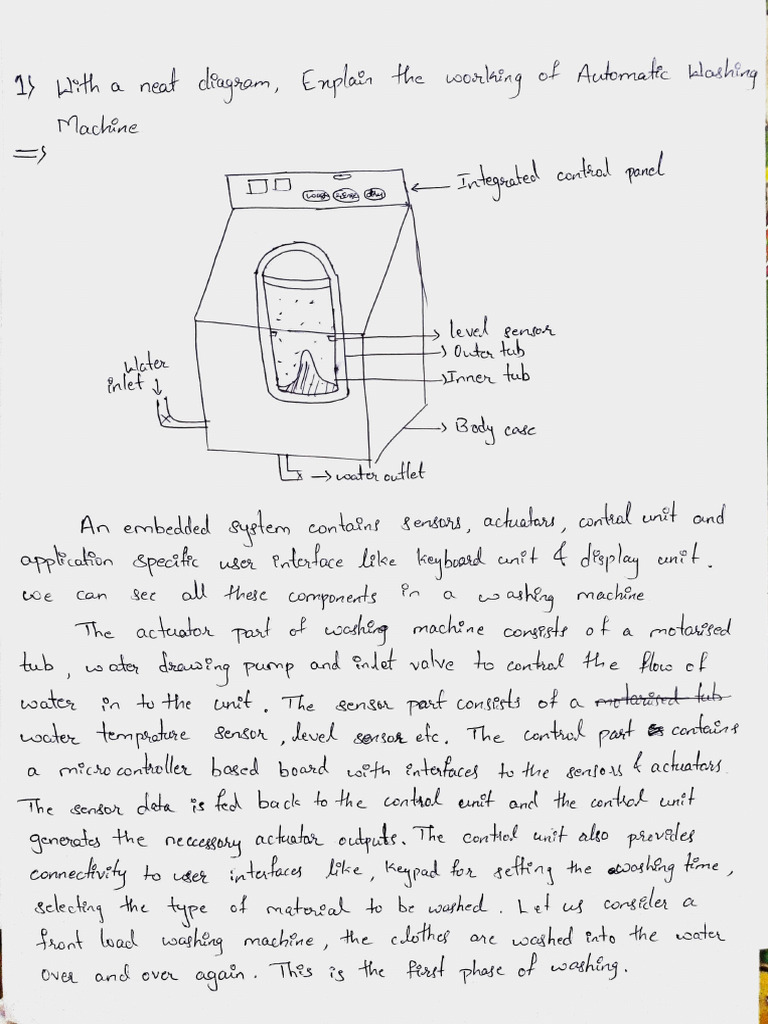 1) With a neat diagram, Explain the working of Automatic Washing
Machine
=>
Integrated control panel
wash rinse dry
level sensor
Outer tub
Inner tub
Water
inlet
Body case
water outlet
An embedded system contains sensors, actuators, control unit and
application specific user interface like keyboard unit & display unit.
we can see all these components in a washing machine
The actuator part of washing machine consists of a motarised
tub, water drawing pump and inlet valve to control the flow of
water in to the unit. The sensor part consists of a motarised tub
water temprature sensor, level sensor etc. The control part contains
a microcontroller based board with interfaces to the sensors & actuators.
The sensor data is fed back to the control unit and the control unit
generates the neccessory actuator outputs. The control unit also provides
connectivity to user interfaces like, keypad for setting the washing time,
selecting the type of material to be washed. Let us consider a
front load washing machine, the clothes are washed into the water
over and over again. This is the first phase of washing.